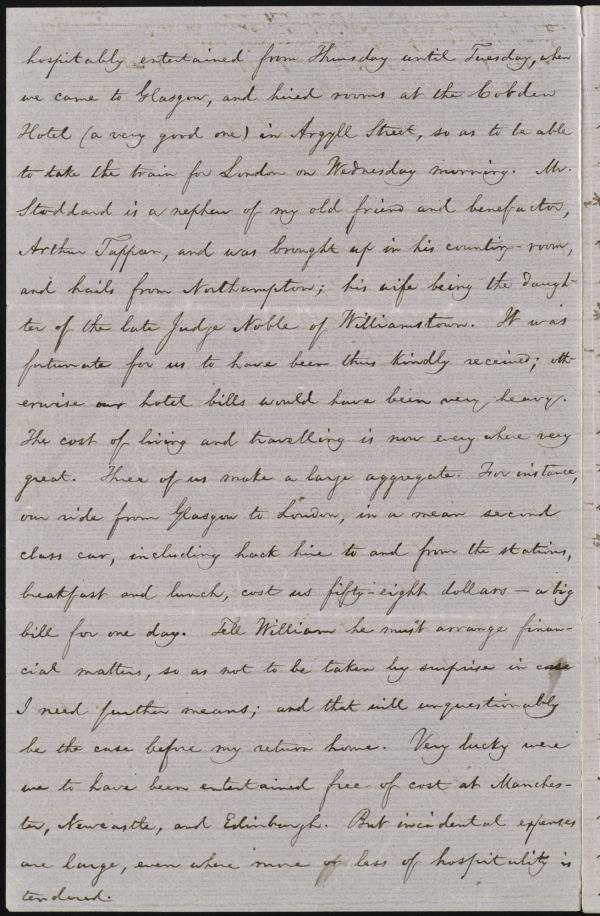 hospitably entertained from Thursday until Tuesday, when
we came to Glasgow, and hired rooms at the Cobden
Hotel (a very good one) in Argyll Street, so as to be able
to take the train for London on Wednesday morning. Mr.
Stoddard is a nephew of my old friend and benefactor,
Arthur Tappan, and was brought up in his counting-room,
and hails from Northampton; his wife being the daugh-
ter of the late Judge Noble of Williamstown. It was
fortunate for us to have been thus kindly received; oth-
erwise our hotel bills would have been very heavy.
The cost of living and travelling is now every where very
great. Three of us make a large aggregate. For instance,
our ride from Glasgow to London, in a mean second
class car, including hack hire to and from the stations,
breakfast and lunch, cost us fifty-eight dollars — a big
bill for one day. Tell William he must arrange finan-
cial matters, so as not to be taken by surprise in case
I need further means; and that will unquestionably
be the case before my return home. Very lucky were
we to have been entertained free of cost at Manches-
ter, Newcastle, and Edinburgh. But incidental expenses
are large, even where more or less of hospitality is
tendered.